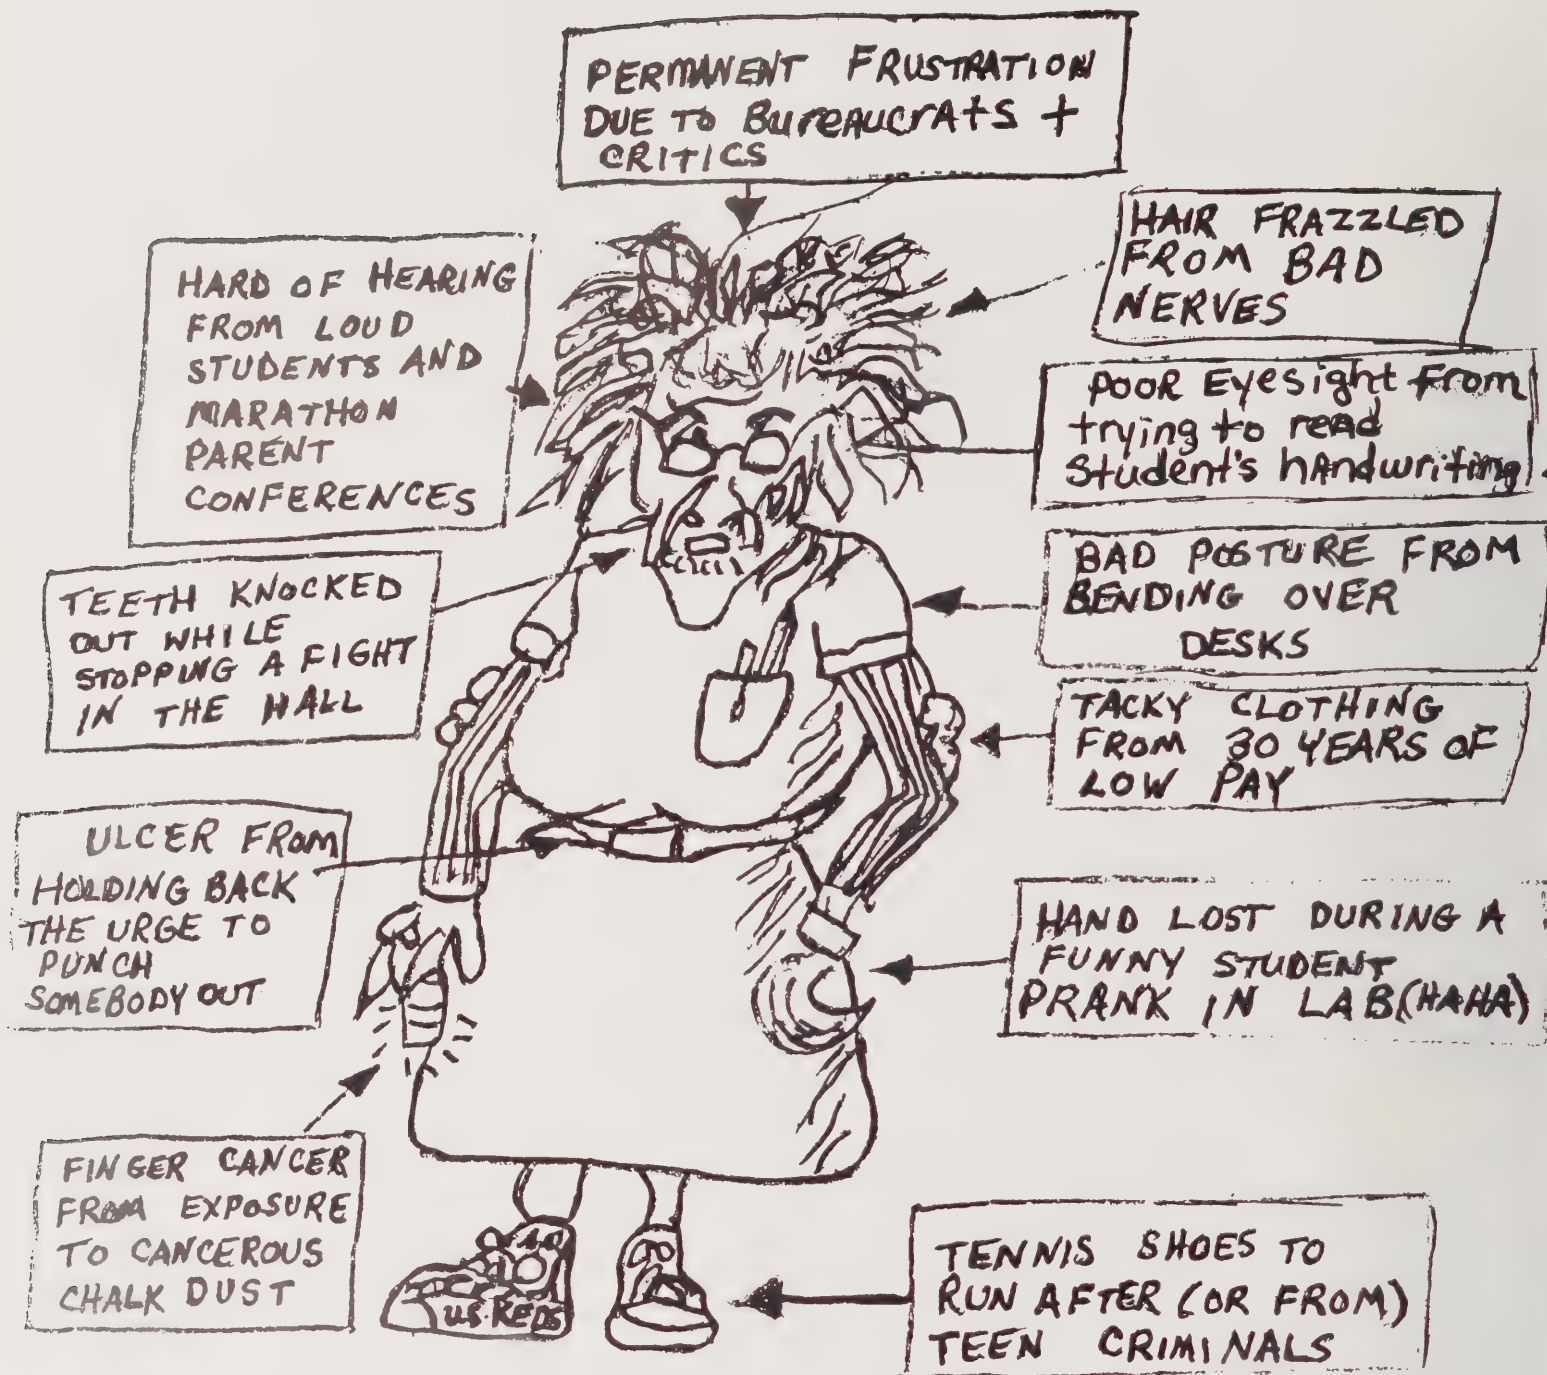 PERMANENT FRUSTRATION
DUE TO BureAucrAts +
CRITICS
HARD OF HEARING
FROM LOUD
STUDENTS AND
MARATHON
PARENT
CONFERENCES
HAIR FRAZZLED
FROM BAD
NERVES
POOR Eyesight From
trying to read
Student's hAndwriting.
TEETH KNOCKED
OUT WHILE
STOPPING A FIGHT
IN THE HALL
BAD POSTURE FROM
BENDING OVER
DESKS
TACKY CLOTHING
FROM 30 YEARS OF
LOW PAY
ULCER FROM
HOLDING BACK
THE URGE TO
PUNCH
SOMEBODY OUT
HAND LOST DURING A
FUNNY STUDENT
PRANK IN LAB (HAHA)
FINGER CANCER
FROM EXPOSURE
TO CANCEROUS
CHALK DUST
U.S. REDS
TENNIS SHOES TO
RUN AFTER (OR FROM)
TEEN CRIMINALS